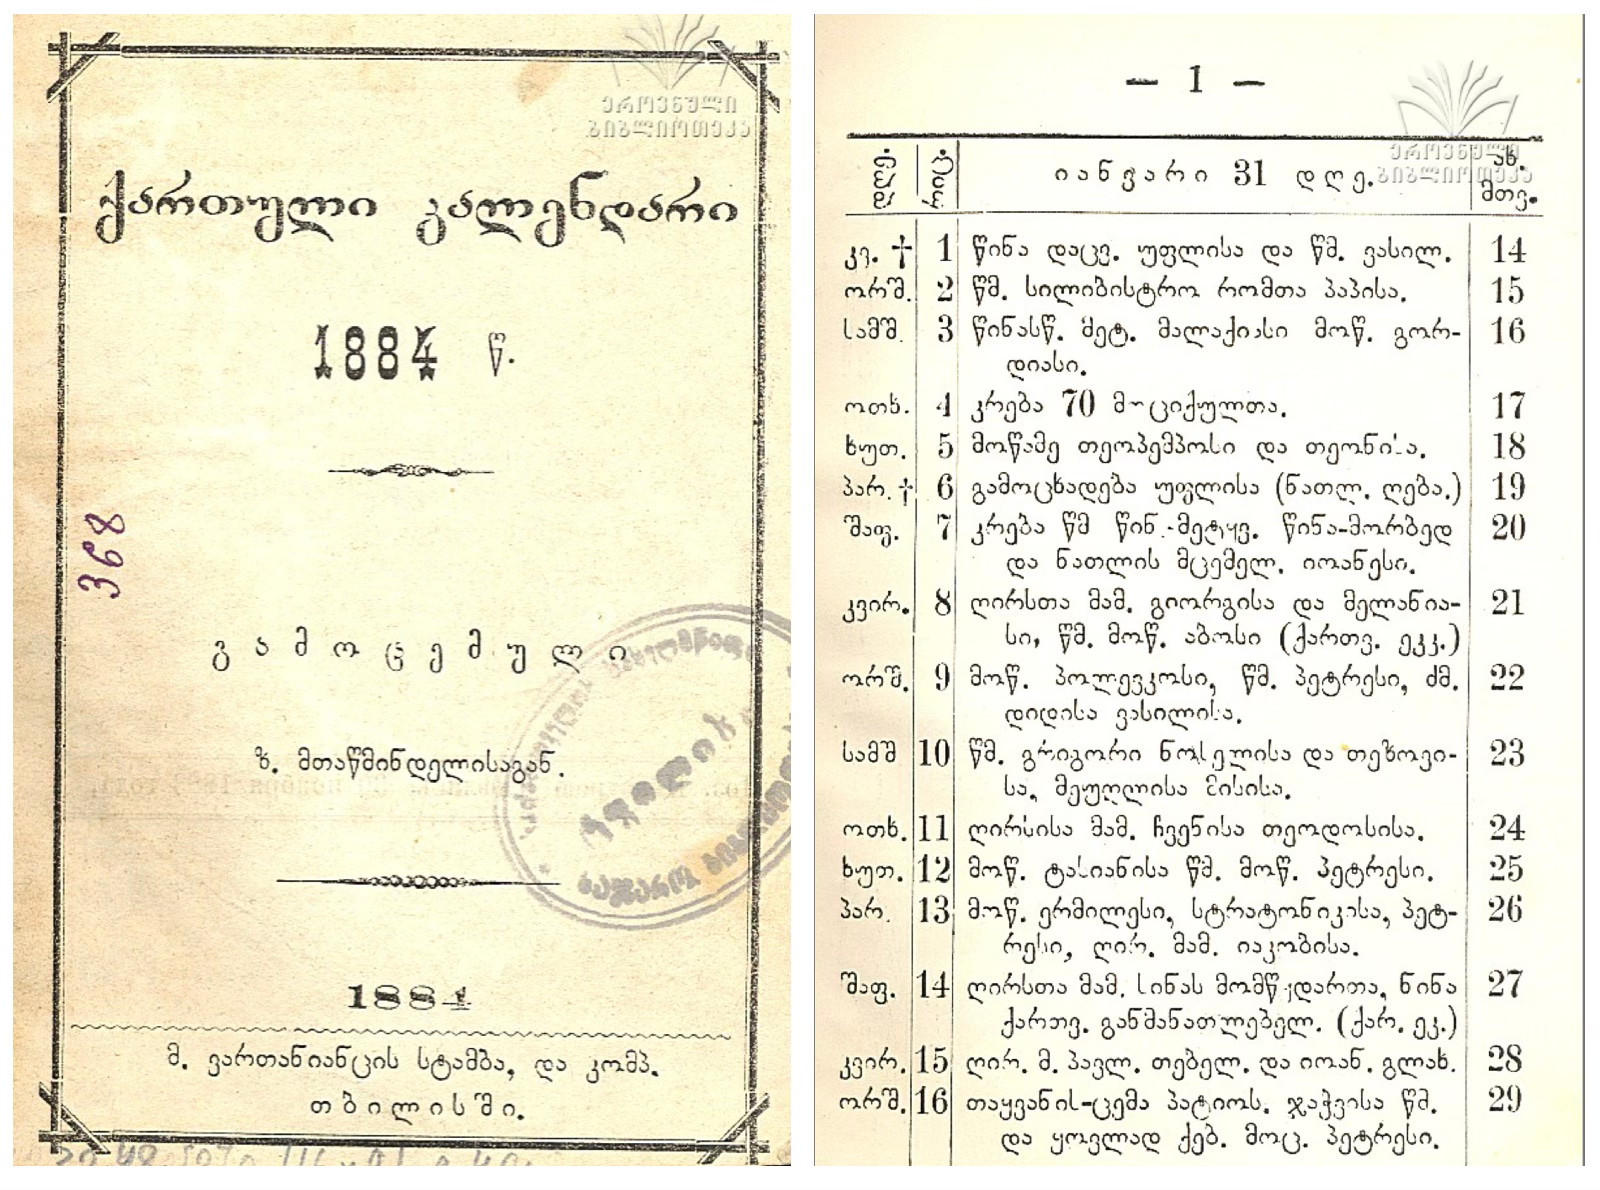 ეროვნული
ბიბლიოთეკა
ქართული კალენდარი
1884 წ.
368
გამოცემული
ზ. მთაწმინდელისაგან.
1884
მ. ვართანიანცის სტამბა, და კომპ.
თბილისში.
— 1 —
ეროვნული
ბიბლიოთეკა
დღე. რიც. იანვარი 31 დღე. ახ. მთვ.
კვ. † 1 წინა დაცვ. უფლისა და წმ. ვასილ. 14
ორშ. 2 წმ. სილიბისტრო რომთა პაპისა. 15
სამშ. 3 წინასწ. მეტ. მალაქიასი მოწ. გორ- 16
დიასი.
ოთხ. 4 კრება 70 მოციქულთა. 17
ხუთ. 5 მოწამე თეოპემპოსი და თეონისა. 18
პარ. † 6 გამოცხადება უფლისა (ნათლ. ღება.) 19
შაფ. 7 კრება წმ წინ.-მეტყვ. წინა-მორბედ 20
და ნათლის მცემელ. იოანესი.
კვირ. 8 ღირსთა მამ. გიორგისა და მელანია- 21
სი, წმ. მოწ. აბოსი (ქართვ. ეკკ.)
ორშ. 9 მოწ. პოლევკოსი, წმ. პეტრესი, ძმ. 22
დიდისა ვასილისა.
სამშ 10 წმ. გრიგორი ნოსელისა და თეზოვი- 23
სა, მეუღლისა მისისა.
ოთხ. 11 ღირსისა მამ. ჩვენისა თეოდოსისა. 24
ხუთ. 12 მოწ. ტასიანისა წმ. მოწ. პეტრესი. 25
პარ. 13 მოწ. ერმილესი, სტრატონიკისა, პეტ- 26
რესი, ღირ. მამ. იაკობისა.
შაფ. 14 ღირსთა მამ. სინას მომწყდართა, ნინა 27
ქართვ. განმანათლებელ. (ქარ. ეკ.)
კვირ. 15 ღირ. მ. პავლ. თებელ. და იოან. გლახ. 28
ორშ. 16 თაყვანის-ცემა პატიოს. ჯაჭვისა წმ. 29
და ყოვლად ქებ. მოც. პეტრესი.